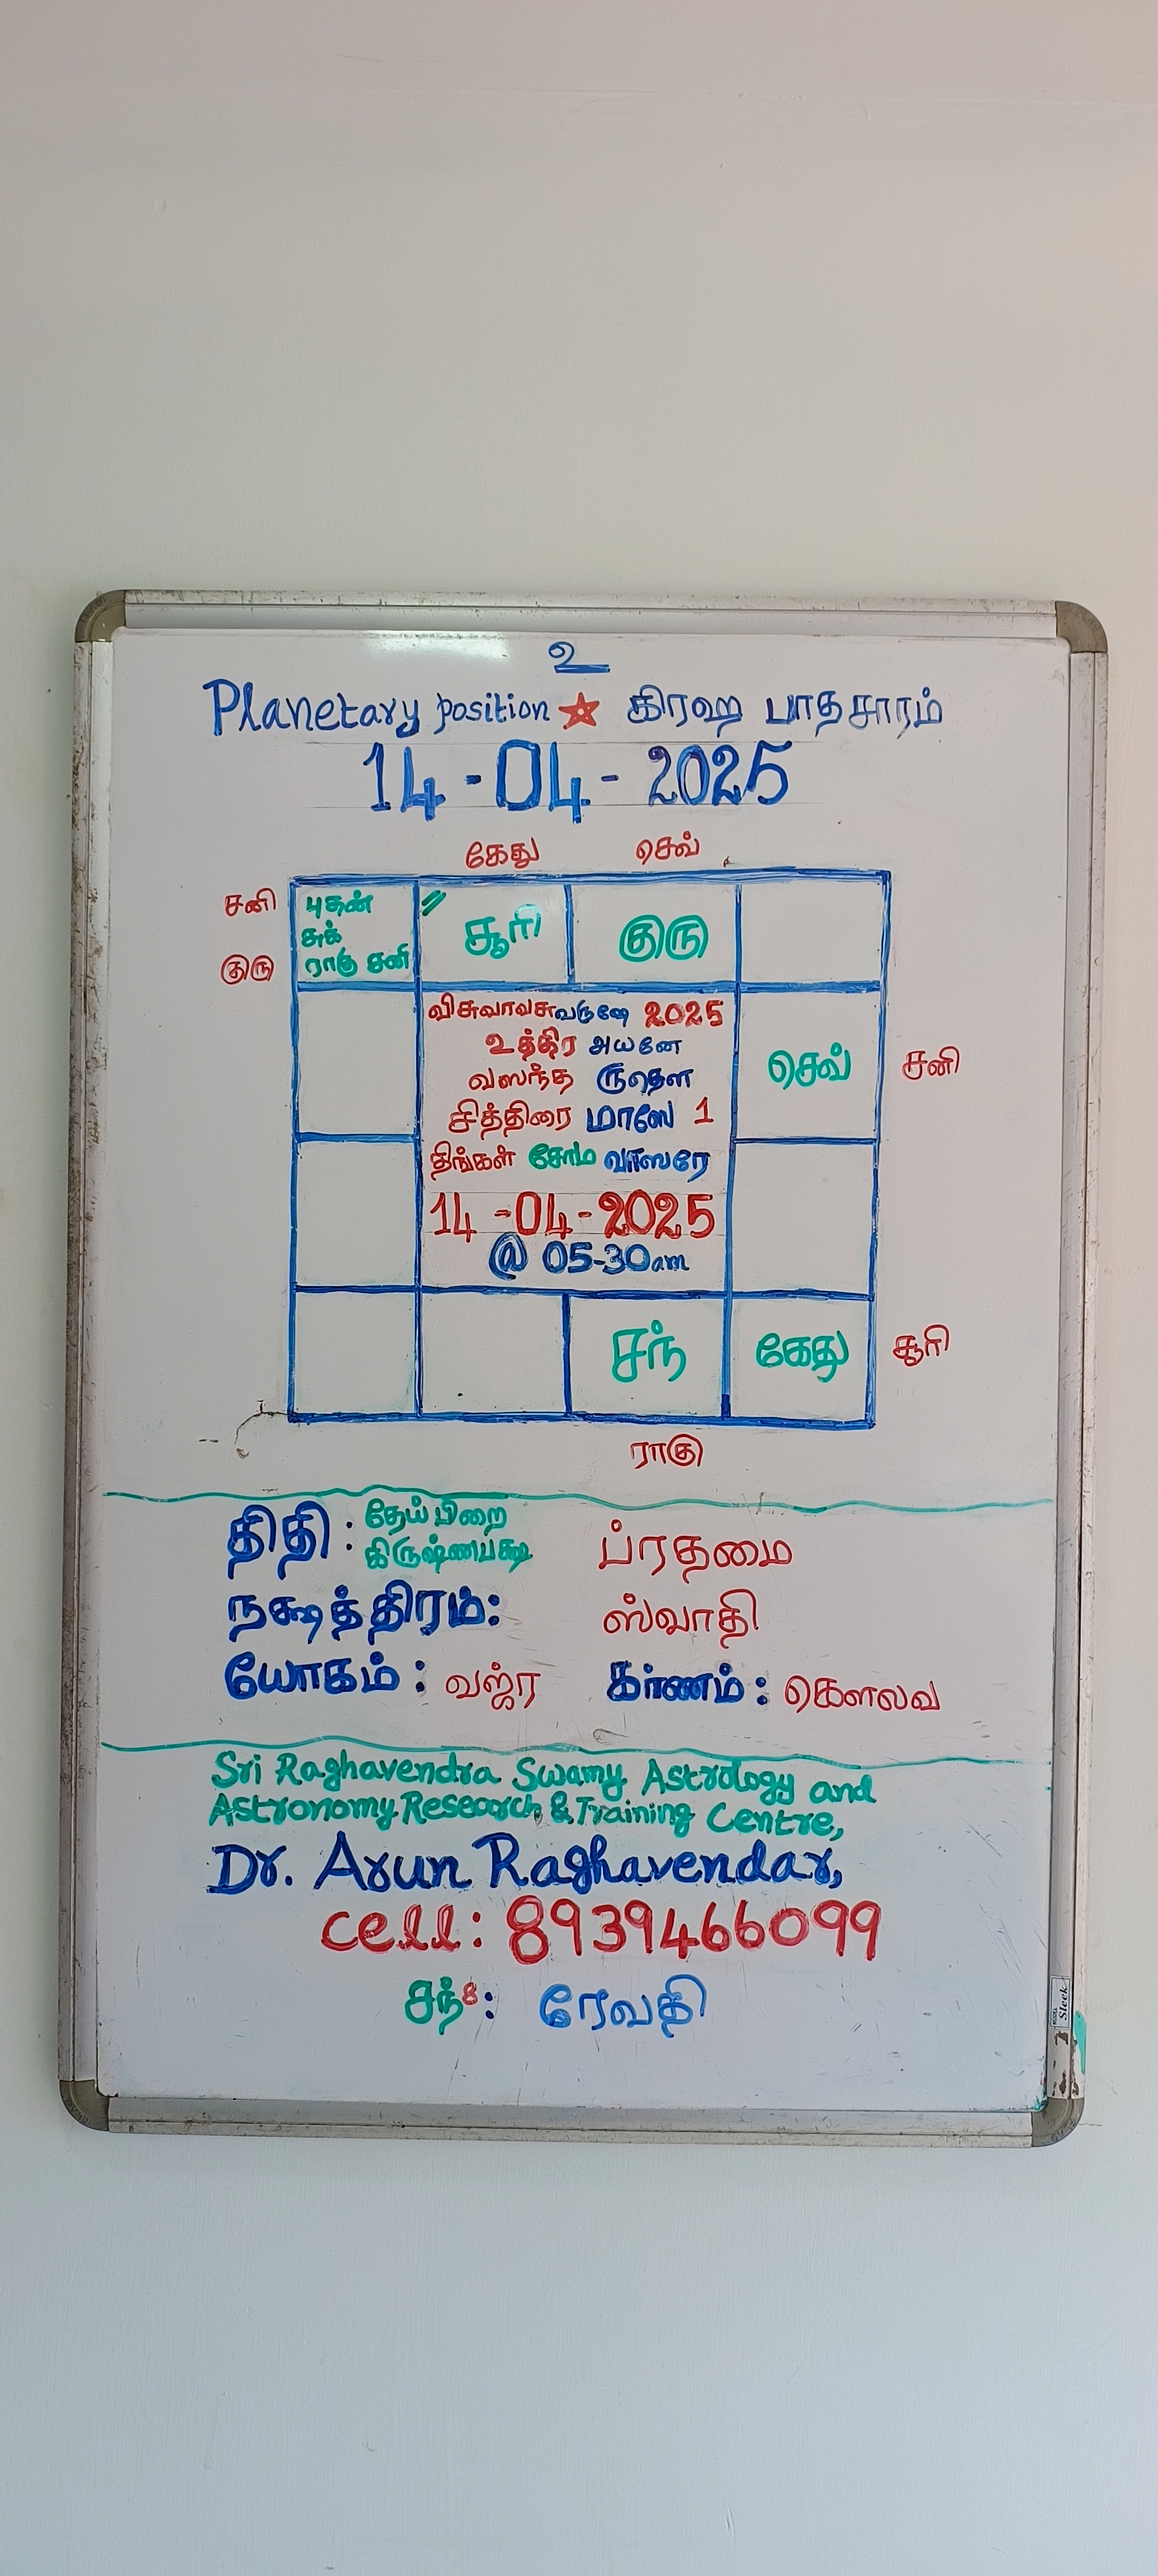 உ
Planetary position ★ கிரஹ பாதசாரம்
14-04-2025
கேது செவ்
சனி புதன் சூரி குரு
சுக்
குரு ராகு சனி
விசுவாவசுவருஷே 2025
உத்திர அயனே
வஸந்த ருதௌ
செவ் சனி
சித்திரை மாஸே 1
திங்கள் சோம வாஸரே
14-04-2025
@ 05-30am
சந் கேது சூரி
ராகு
திதி : தேய்பிறை
கிருஷ்ணபக்ஷ ப்ரதமை
நக்ஷத்திரம்: ஸ்வாதி
யோகம் : வஜ்ர கர்ணம் : கௌலவ
Sri Raghavendra Swamy Astrology and
Astronomy Research & Training Centre,
Dr. Arun Raghavendar,
cell: 8939466099
சந்8: ரேவதி
MODEL Sleek